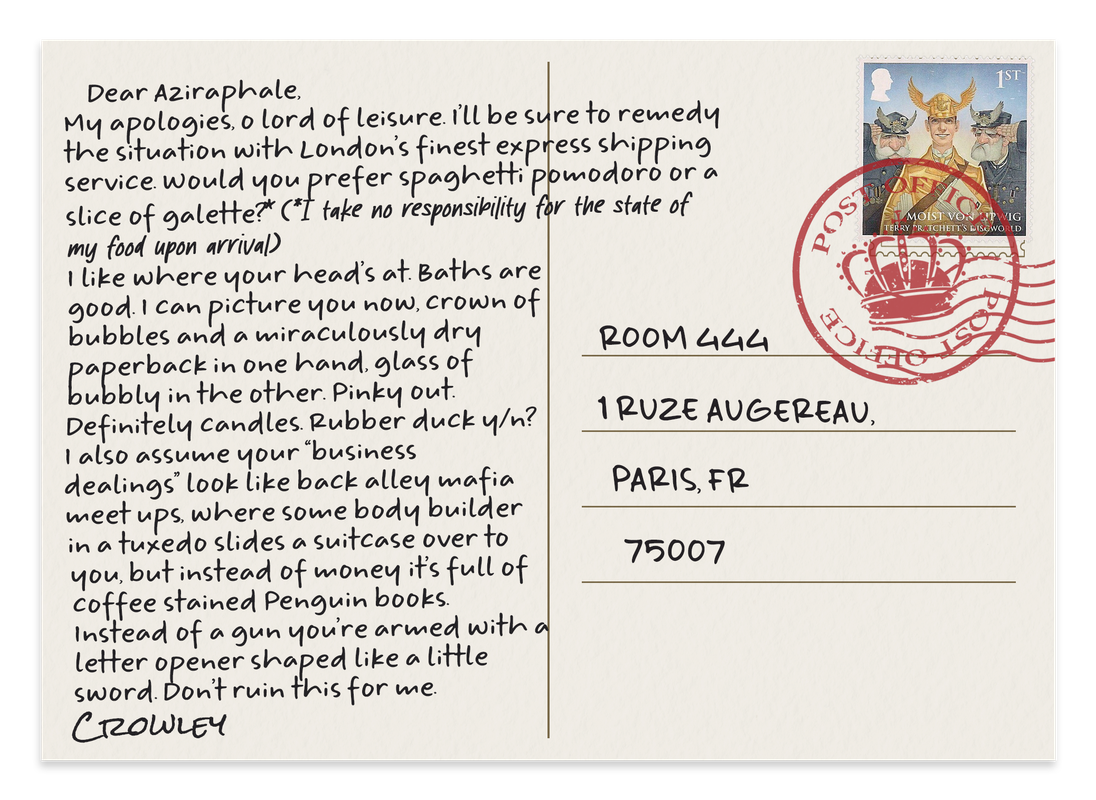 Dear Aziraphale,
My apologies, o lord of leisure. I'll be sure to remedy
the situation with London's finest express shipping
service. Would you prefer spaghetti pomodoro or a
slice of galette?* (*I take no responsibility for the state of
my food upon arrival)
I like where your head's at. Baths are
good. I can picture you now, crown of
bubbles and a miraculously dry
paperback in one hand, glass of
bubbly in the other. Pinky out.
Definitely candles. Rubber duck y/n?
I also assume your "business
dealings" look like back alley mafia
meet ups, where some body builder
in a tuxedo slides a suitcase over to
you, but instead of money it's full of
coffee stained Penguin books.
Instead of a gun you're armed with a
letter opener shaped like a little
sword. Don't ruin this for me.
CROWLEY
1ST
MOIST VON LIPWIG
TERRY PRATCHETT'S DISCWORLD
POST OFFICE
POST OFFICE
ROOM 444
1 RUZE AUGEREAU,
PARIS, FR
75007